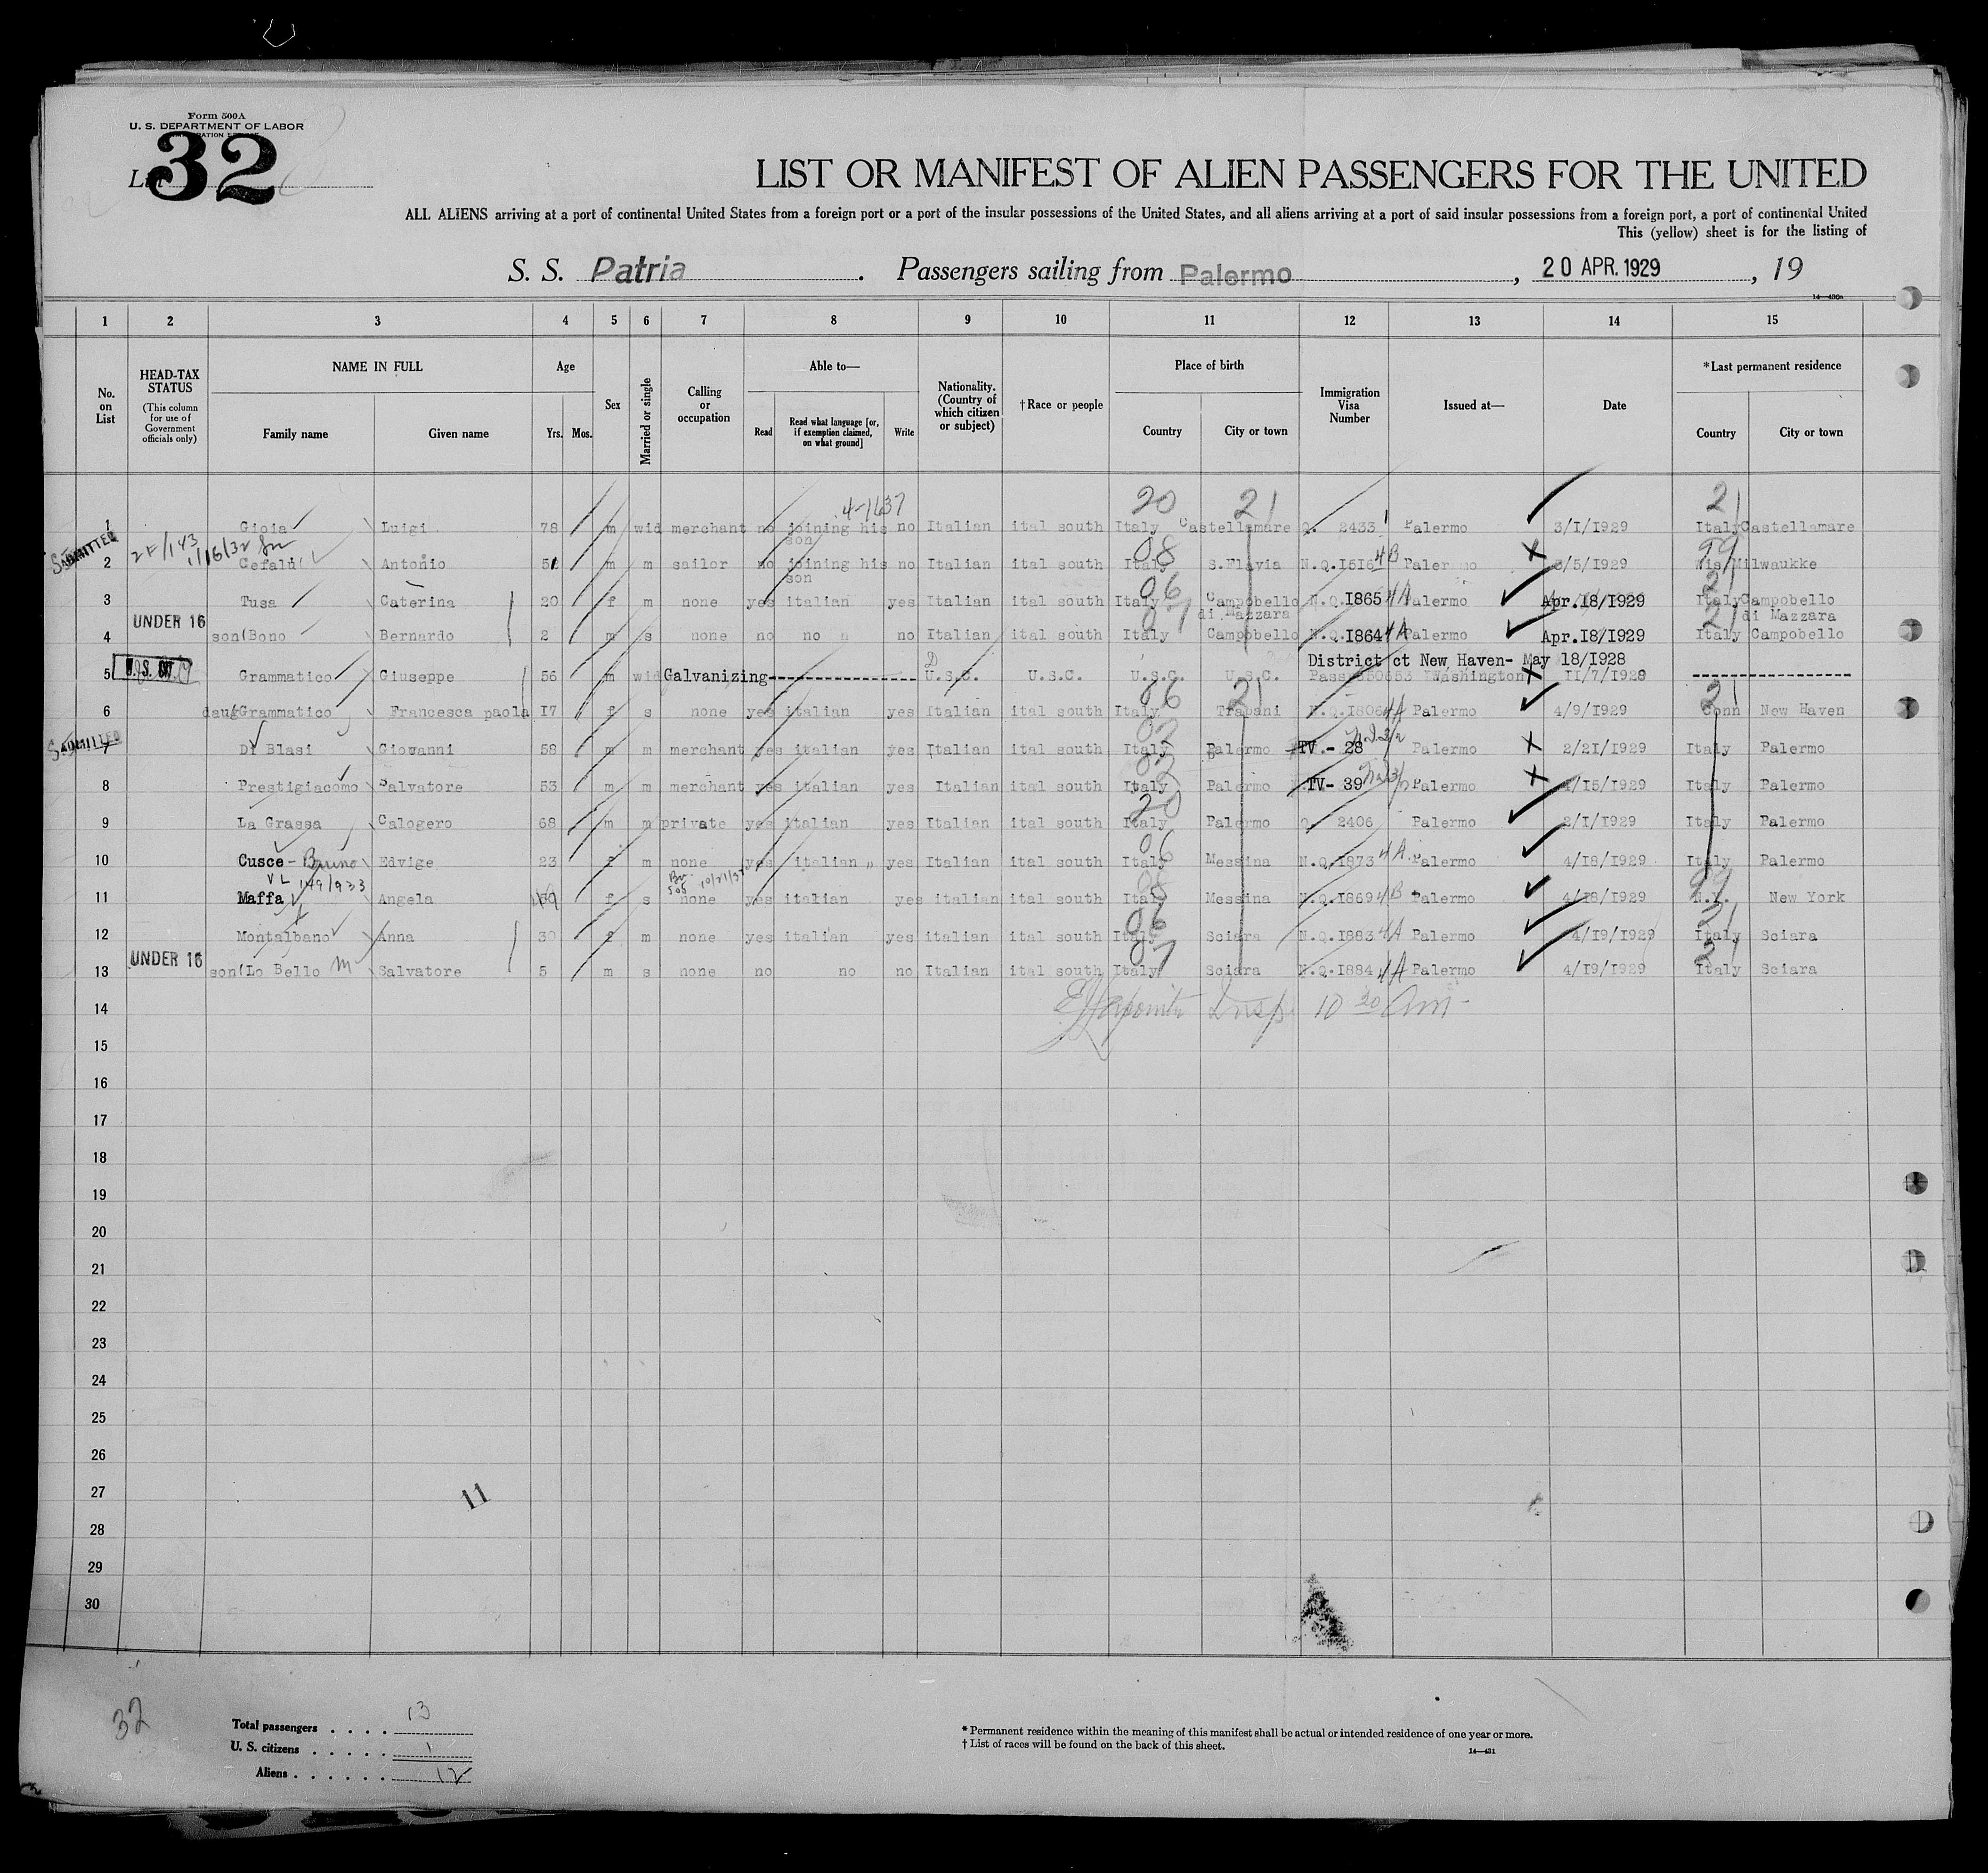 Form 500A
U. S. DEPARTMENT OF LABOR
32
LIST OR MANIFEST OF ALIEN PASSENGERS FOR THE UNITED
ALL ALIENS arriving at a port of continental United States from a foreign port or a port of the insular possessions of the United States, and all aliens arriving at a port of said insular possessions from a foreign port, a port of continental United
This (yellow) sheet is for the listing of
S. S. Patria . Passengers sailing from Palermo , 20 APR. 1929 , 19
14—430a
1 2 3 4 5 6 7 8 9 10 11 12 13 14 15
No. on List
HEAD-TAX STATUS (This column for use of Government officials only)
NAME IN FULL Family name Given name
Age Yrs. Mos.
Sex
Married or single
Calling or occupation
Able to— Read Read what language [or, if exemption claimed, on what ground] Write
Nationality. (Country of which citizen or subject)
† Race or people
Place of birth Country City or town
Immigration Visa Number
Issued at—
Date
* Last permanent residence Country City or town
20 21 21
1 Gioia Luigi 78 m wid merchant no joining his son no Italian ital south Italy Castellamare Q. 2433 Palermo 3/1/1929 Italy Castellamare
ADMITTED
08 99
2 Cefalu Antonio m m sailor no joining his son no Italian ital south Italy S.Flavia N.Q.1516 4B Palermo 3/5/1929 Wis Milwaukke
06 21
3 Tusa Caterina 20 f m none yes italian yes Italian ital south Italy Campobello di Mazzara N.Q.1865 4A Palermo Apr.18/1929 Italy Campobello di Mazzara
UNDER 16 07 21
4 son(Bono Bernardo 2 m s none no no no Italian ital south Italy Campobello N.Q.1864 4A Palermo Apr.18/1929 Italy Campobello
District ct New Haven- May 18/1928
5 U.S. CIT. Grammatico Giuseppe 56 m wid Galvanizing U.S.C. U.S.C. U.S.C. U.S.C. Pass 350653 Washington 11/7/1928
06 21 21
6 daug(Grammatico Francesca paola 17 f s none yes italian yes Italian ital south Italy Trapani N.Q.1806 4A Palermo 4/9/1929 Conn New Haven
ADMITTED
02
7 Di Blasi Giovanni 58 m m merchant yes italian yes Italian ital south Italy Palermo TV.- 28 Palermo 2/21/1929 Italy Palermo
02
8 Prestigiacomo Salvatore 53 m m merchant yes italian yes Italian ital south Italy Palermo TV- 39 Palermo 4/15/1929 Italy Palermo
20
9 La Grassa Calogero 68 m m private yes italian yes Italian ital south Italy Palermo Q. 2406 Palermo 2/1/1929 Italy Palermo
06
10 Cusce - Bruno Edvige 23 f m none yes italian yes Italian ital south Italy Messina N.Q.1873 4A Palermo 4/18/1929 Italy Palermo
VL 149/933 10/21/37
08 99
11 Maffa Angela f s none yes italian yes italian ital south Italy Messina N.Q.1869 4B Palermo 4/18/1929 N.Y. New York
06 21
12 Montalbano Anna 30 f m none yes italian yes italian ital south Italy Sciara N.Q.1883 4A Palermo 4/19/1929 Italy Sciara
UNDER 16 07 21
13 son(Lo Bello m Salvatore 5 m s none no no no Italian ital south Italy Sciara N.Q.1884 4A Palermo 4/19/1929 Italy Sciara
14 Insp. 10 20 Am
15
16
17
18
19
20
21
22
23
24
25
26
27
11
28
29
30
32
Total passengers . . . . 13
U. S. citizens . . . . . 1
Aliens . . . . . . 12
* Permanent residence within the meaning of this manifest shall be actual or intended residence of one year or more.
† List of races will be found on the back of this sheet.
14—431